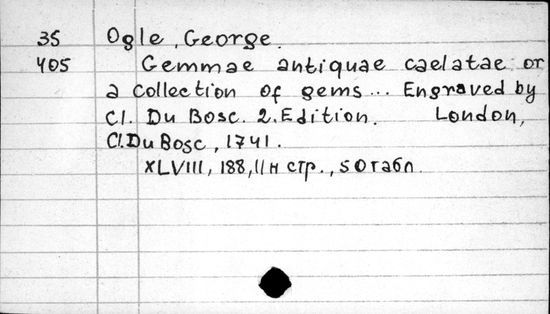 35 Ogle, George.
405 Gemmae antiquae caelatae or
a collection of gems... Engraved by
Cl. Du Bosc. 2. Edition. London,
Cl. Du Bosc, 1741.
XLVIII, 188, 11 н стр., 50 табл.